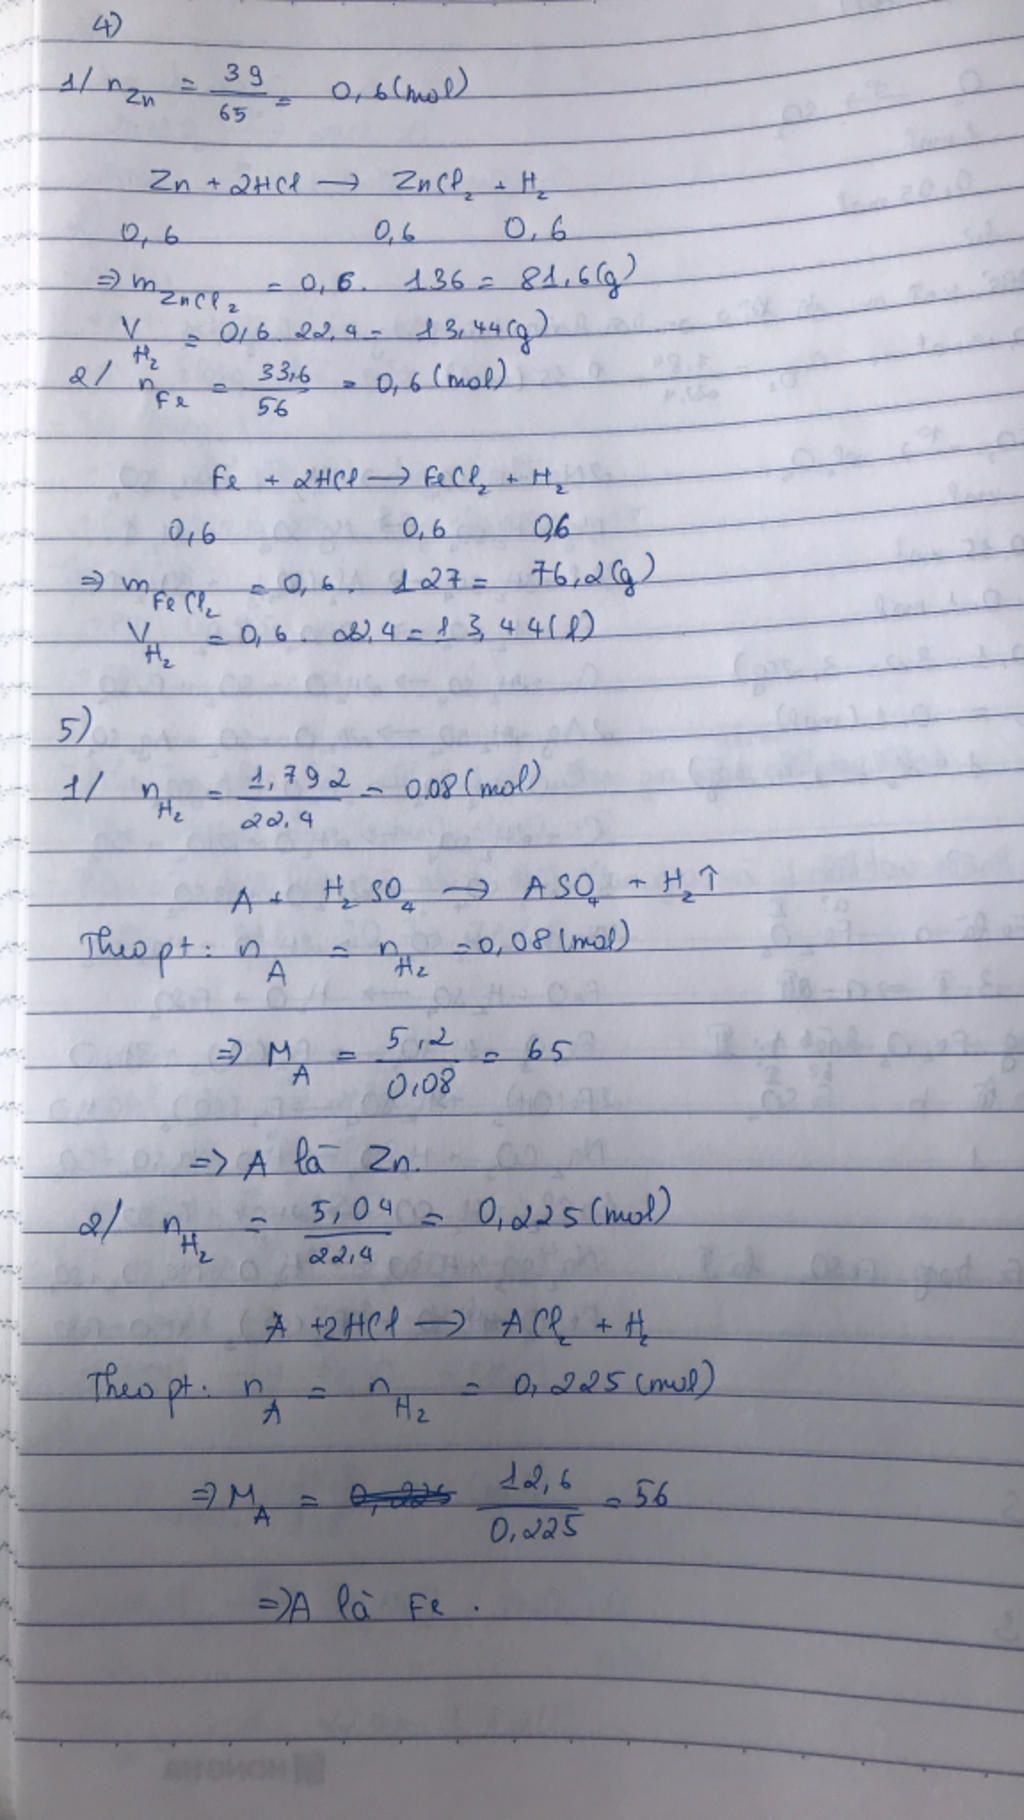 4)
1/ n Zn = 39/65 = 0,6 (mol)
Zn + 2HCl → ZnCl₂ + H₂
0,6 0,6 0,6
⇒ m ZnCl₂ = 0,6. 136 = 81,6(g)
V H₂ = 0,6. 22,4 = 13,44(g)
2/ n Fe = 33,6/56 = 0,6 (mol)
Fe + 2HCl → FeCl₂ + H₂
0,6 0,6 0,6
⇒ m FeCl₂ = 0,6. 127 = 76,2(g)
V H₂ = 0,6. 22,4 = 13,44(l)
5)
1/ n H₂ = 1,792/22,4 = 0,08 (mol)
A + H₂SO₄ → ASO₄ + H₂↑
Theo pt: n A = n H₂ = 0,08 (mol)
⇒ M A = 5,2/0,08 = 65
⇒ A là Zn.
2/ n H₂ = 5,04/22,4 = 0,225 (mol)
A + 2HCl → ACl₂ + H₂
Theo pt: n A = n H₂ = 0,225 (mol)
⇒ M A = 12,6/0,225 = 56
⇒ A là Fe.